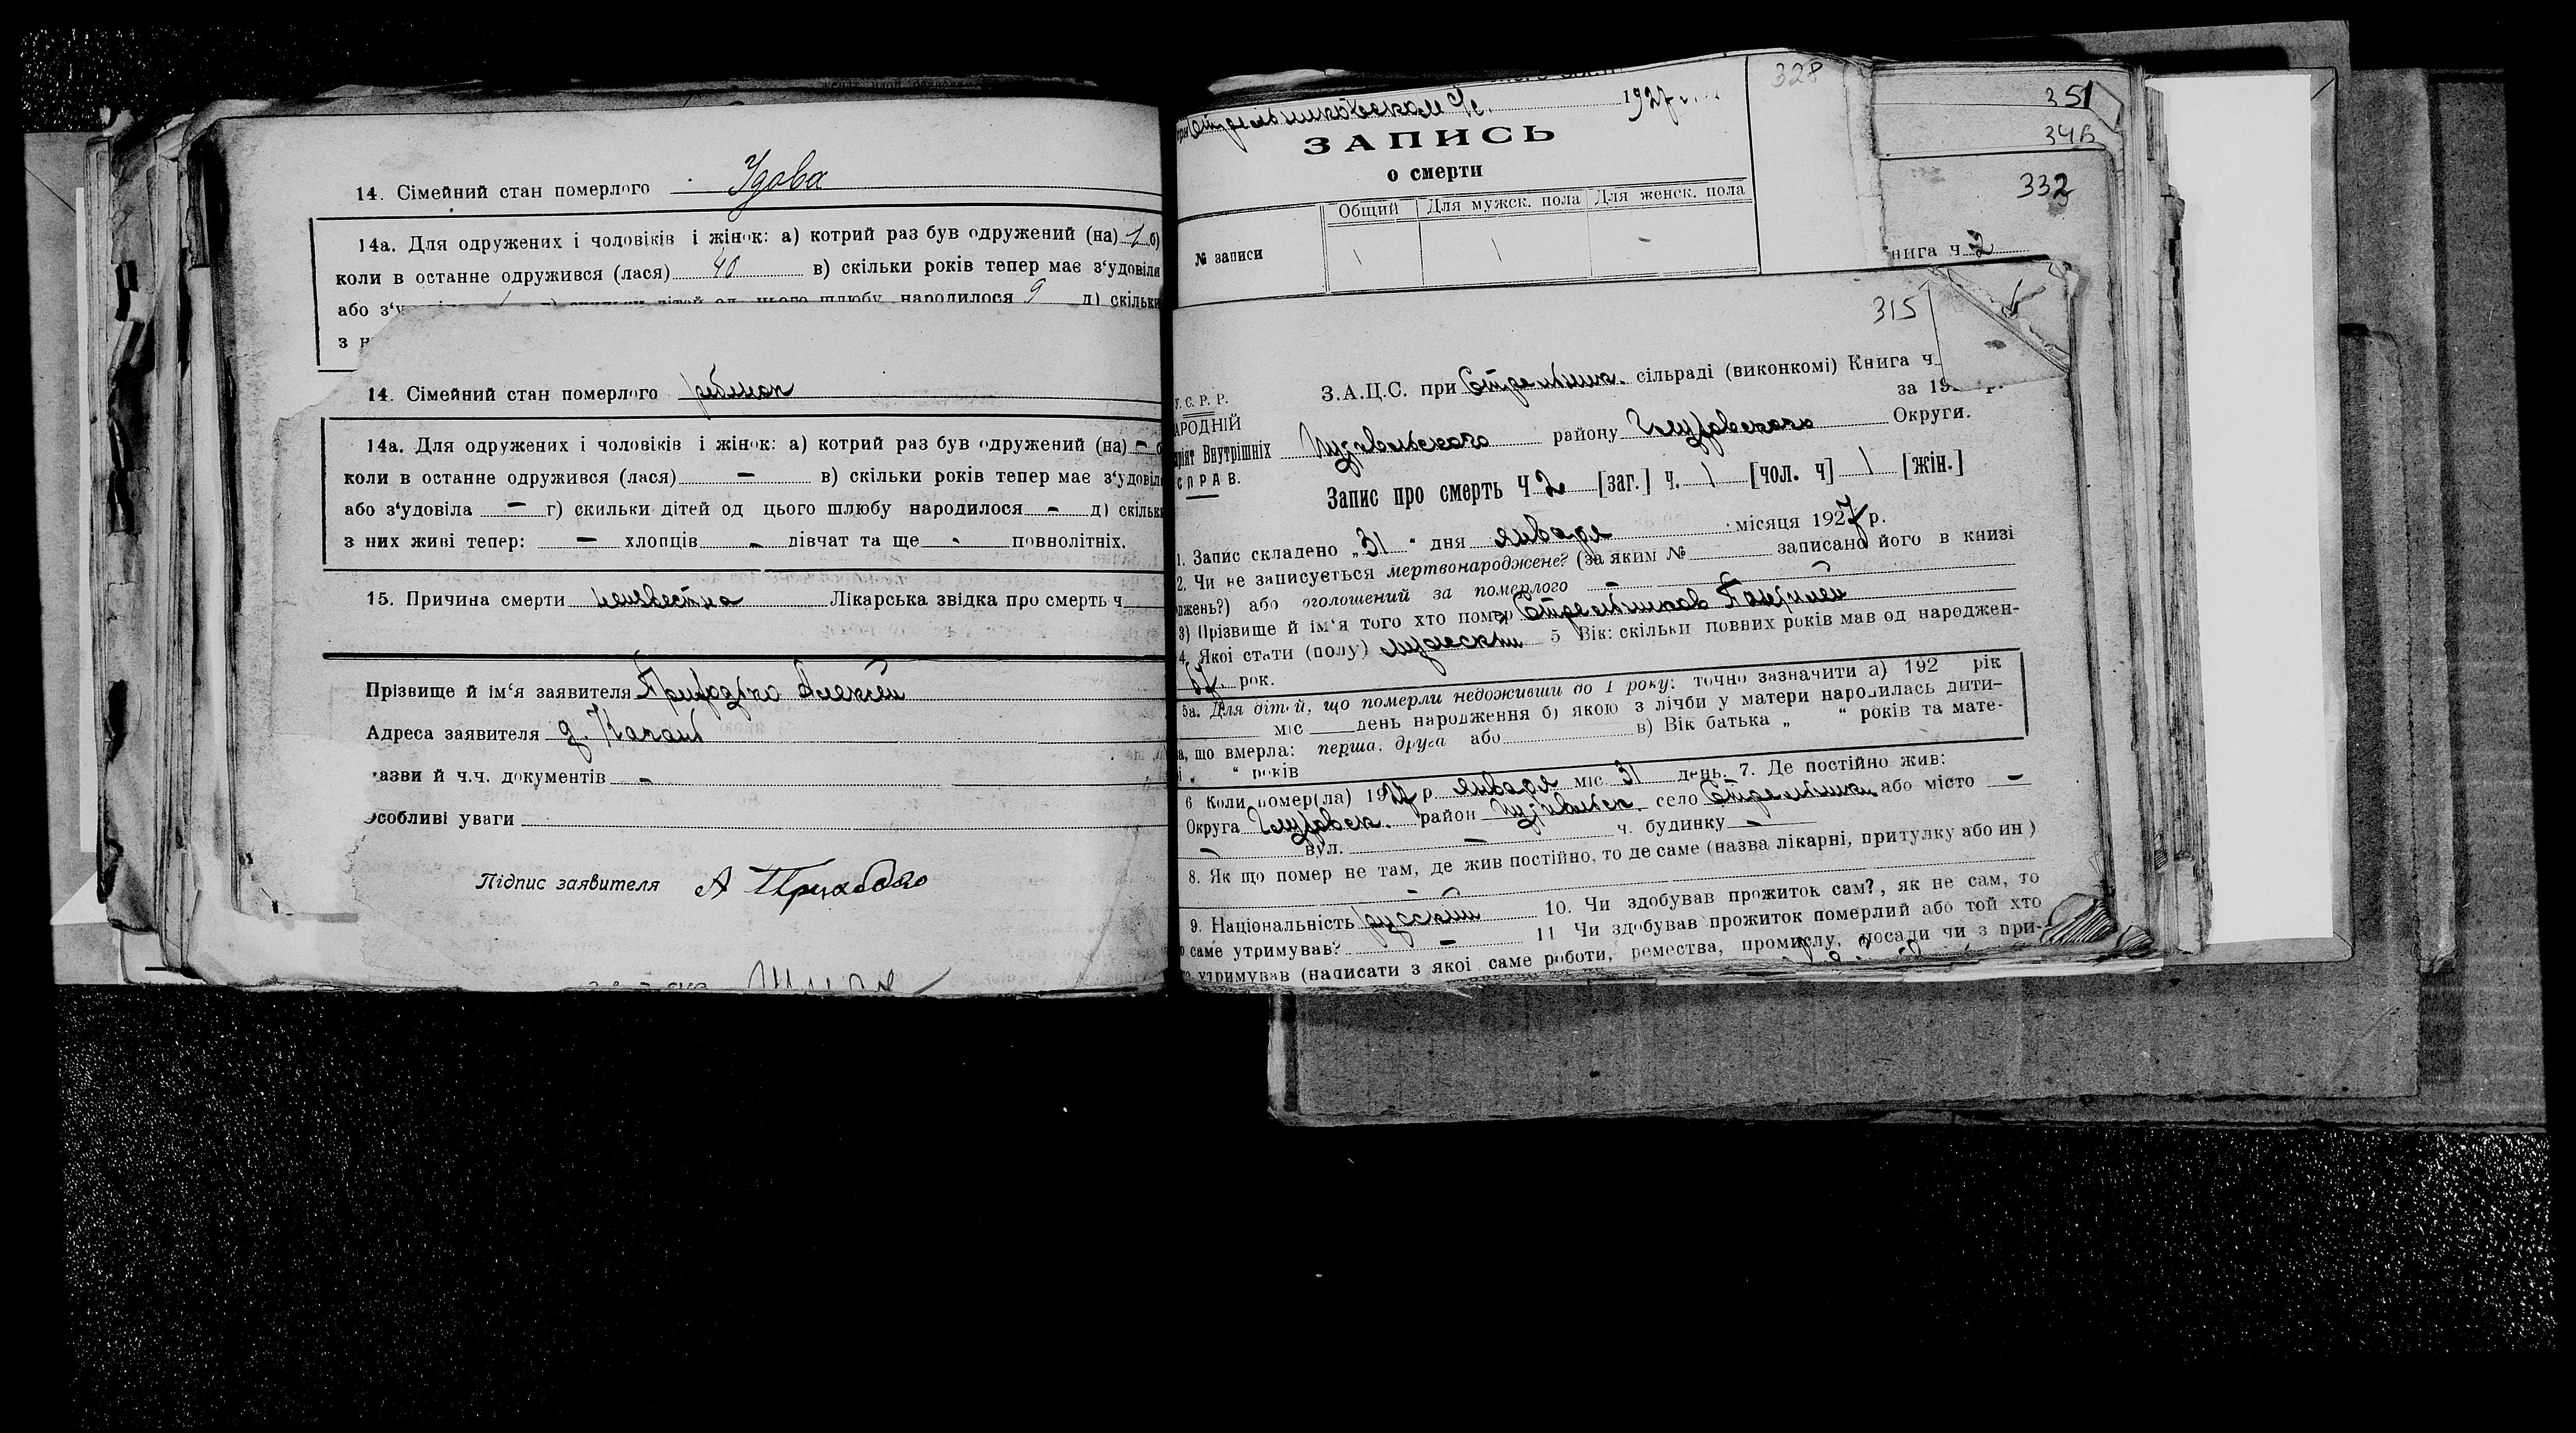 14. Сімейний стан померлого Удова
14а. Для одружених і чоловіків і жінок: а) котрий раз був одружений (на) 1 б)
коли в останне одружився (лася) 40 в) скільки років тепер має з‘удовіла
або з‘у народилося 9 д) скільки
з н
14. Сімейний стан померлого ребенок
14а. Для одружених і чоловіків і жінок: а) котрий раз був одружений (на) –
коли в останне одружився (лася) – в) скільки років тепер має з‘удовіл
або з‘удовіла – г) скильки дітей од цього шлюбу народилося - д) скільк
з них живі тепер: – хлопців - дівчат та ще - повнолітніх.
15. Причина смерти неизвестна Лікарська звідка про смерть ч
Прізвище й ім‘я заявителя Алексей
Адреса заявителя д.
азви й ч.ч. документів –
Особливі уваги
Підпис заявителя А
328
351
1927
ЗАПИСЬ
о смерти
Общий Для мужск. пола Для женск. пола
№ записи 1 1 -
332
нига ч 2
315
З.А.Ц.С. при Стрельник. сільраді (виконкомі) Книга ч.
за 19 р.
У.С.Р.Р.
АРОДНІЙ
ріят Внутрішніх
СПРАВ.
району Глуховского Округи.
Запис про смерть Ч 2 [заг.] ч. 1 [чол. ч] 1 [жін.]
1. Запис складено „31“ дня января місяця 1927 р.
2. Чи не записується мертвонароджене? (за яким № записано його в книзі
джень?) або оголошений за померлого –
3) Прізвище й ім‘я того хто помер Стрельников
4. Якої стати (полу) мужеский 5 Вік: скільки повних років мав од народжен-
рок.
5а. Для дітей, що померли недоживши до 1 року: точно зазначити а) 192 рік
міс день народження б) якою з лічби у матери народилась дити-
а, що вмерла: перша, друга або в) Вік батька „ “ років та мате-
і „ “ років
6 Коли помер(ла) 1927 р января міс. 31 день. 7. Де постійно жив:
Округа Глуховск. район село Стрельники або місто –
– вул. – ч. будинку –
8. Як що помер не там, де жив постійно, то де саме (назва лікарні, притулку або ин)
–
9. Національність русский 10. Чи здобував прожиток сам?, як не сам, то
о саме утримував? – 11 Чи здобував прожиток померлий або той хто
утримував (написати з якої саме роботи, ремества, промислу, посади чи з при-